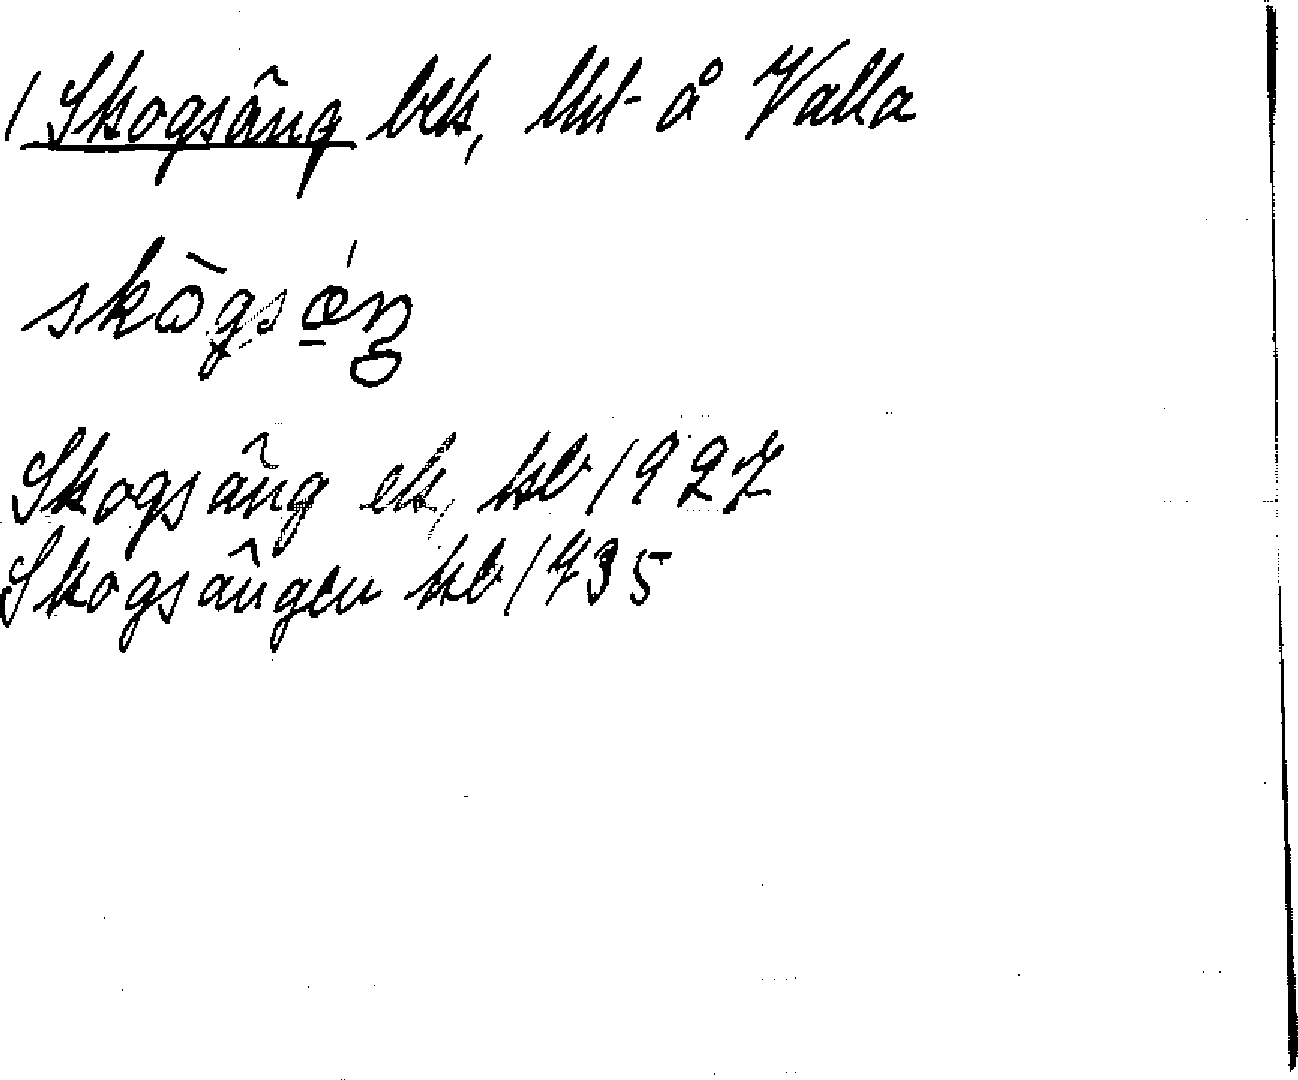 / Skogsäng bek, lht å Valla
skògsǿŋ
Skogsäng ek, kb 1927
Skogsängen kb 1735